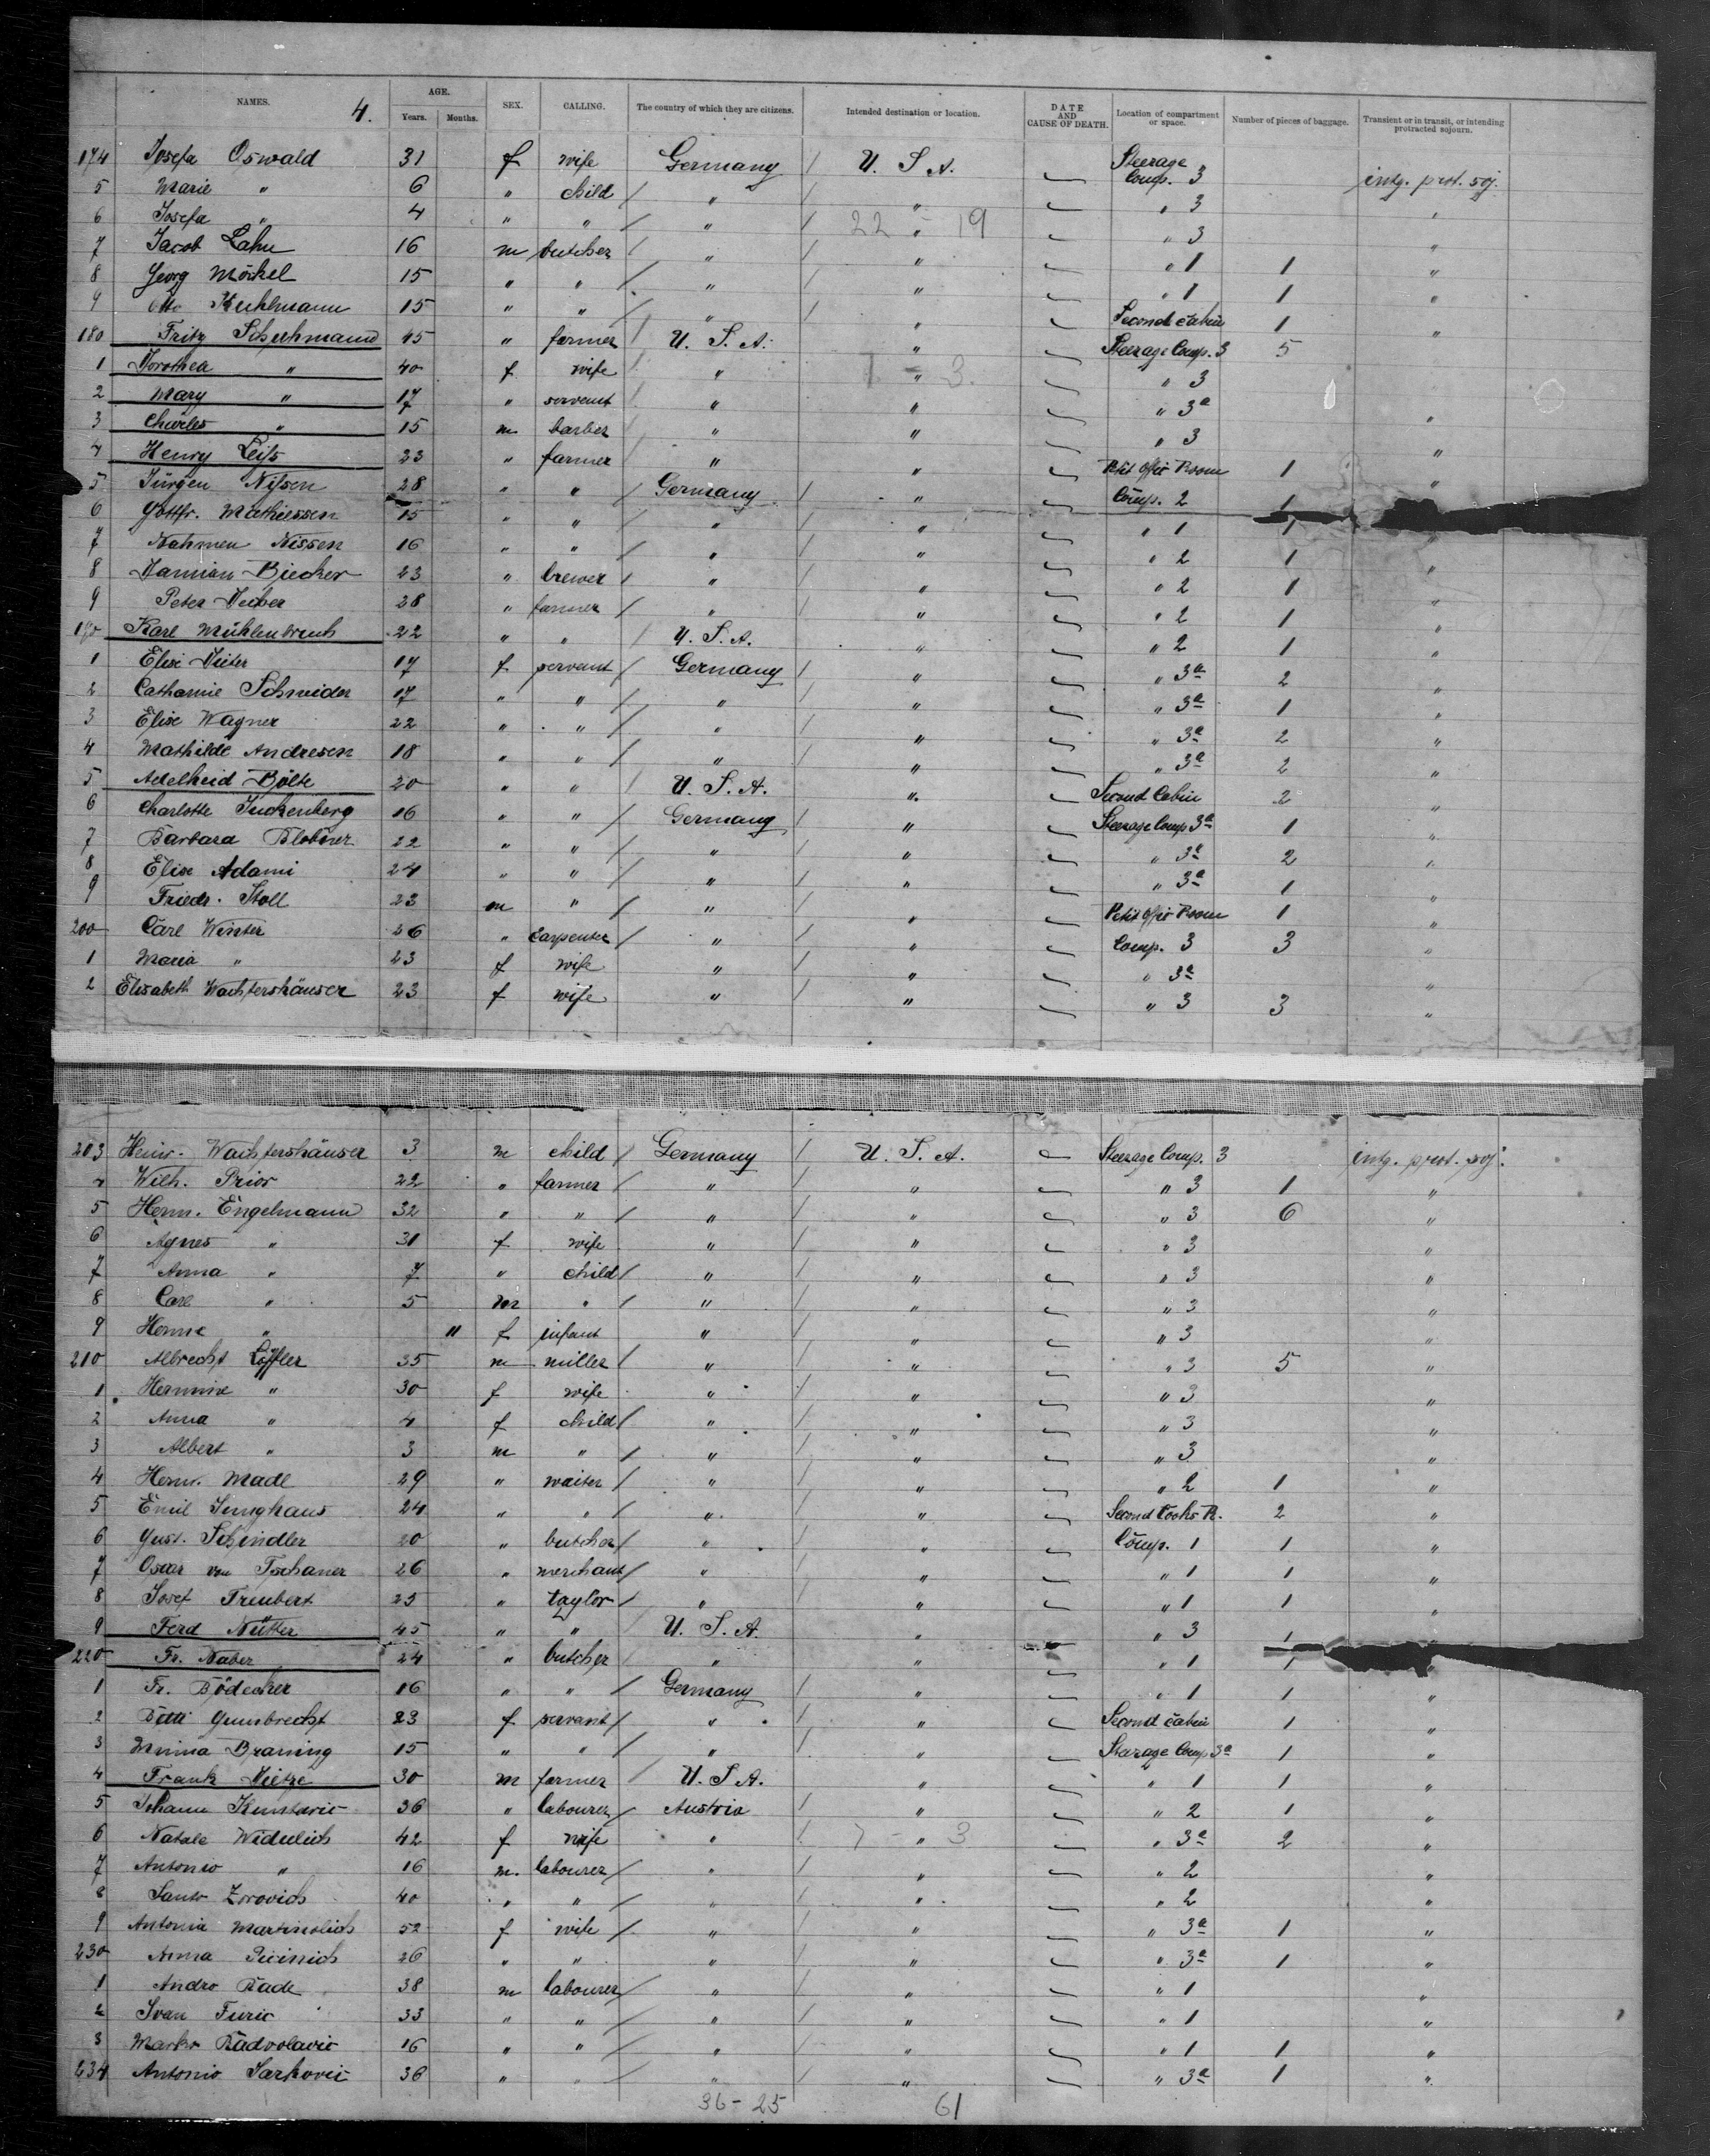 NAMES. 4. AGE. Years. Months. SEX. CALLING. The country of which they are citizens. Intended destination or location. DATE AND CAUSE OF DEATH. Location of compartment or space. Number of pieces of baggage. Transient or in transit, or intending protracted sojourn.
174 Josefa Oswald 31 f wife Germany U. S. A. Steerage Comp. 3 intg. prot. soj.
5 Marie " 6 " child " " " 3 "
6 Josefa " 4 " " " 22 " - 19 " 3 "
7 Jacob Lahu 16 m butcher " " " 1 1 "
8 Georg Möckel 15 " " " " " 1 1 "
9 Otto Kuhlmann 15 " " " " Second Cabin 1 "
180 Fritz Schuhmann 45 " farmer U. S. A. " Steerage Comp. 3 5
1 Dorothea " 40 f wife " 1 " - 3 " 3
2 Mary " 17 " servant " " " 3a "
3 Charles " 15 m barber " " " 3 "
4 Henry Leifs 23 " farmer " " Petit Offir Room 1 "
5 Jürgen Nissen 28 " " Germany " Comp. 2 1
6 Gottfr. Mathiessen 15 " " " " " 1 1 "
7 Nahmen Nissen 16 " " " " " 2 1 "
8 Damian Biecker 23 " brewer " " " 2 1 "
9 Peter Weber 28 " farmer " " " 2 1 "
190 Karl Mühlenbruch 22 " " U. S. A. " " 2 1 "
1 Elise Dieter 17 f servant Germany " " 3a 2 "
2 Catharine Schneider 17 " " " " " 3a 1 "
3 Elise Wagner 22 " " " " " 3a 2 "
4 Mathilde Andresen 18 " " " " " 3a 2 "
5 Adelheid Bölte 20 " " U. S. A. " Second Cabin 2 "
6 Charlotte Juckenberg 16 " " Germany " Steerage Comp 3a 1 "
7 Barbara Blobner 22 " " " " " 3a 2 "
8 Elise Adami 24 " " " " " 3a 1 "
9 Friedr. Stoll 23 m " " " Petit Offir Room 1 "
200 Carl Winter 26 " carpenter " " Comp. 3 3 "
1 Maria " 23 f wife " " " 3a "
2 Elisabeth Wachtershäuser 23 f wife " " " 3 3 "
203 Heinr. Wachtershäuser 3 m child Germany U. S. A. Steerage Comp. 3 intg. prot. soj.
4 Wilh. Prior 22 " farmer " " " 3 1 "
5 Herm. Engelmann 32 " " " " " 3 6 "
6 Agnes " 31 f wife " " " 3 "
7 Anna " 7 " child " " " 3 "
8 Carl " 5 m " " " " 3 "
9 " 11 f infant " " " 3 "
210 Albrecht Löffler 35 m miller " " " 3 5 "
1 Hermine " 30 f wife " " " 3 "
2 Anna " 4 f child " " " 3 "
3 Albert " 3 m " " " " 3 "
4 Herm. Madl 29 " waiter " " " 2 1 "
5 Emil Junghaus 24 " " " " Second Cooks R. 2 "
6 Gust. Schindler 20 " butcher " " Comp. 1 1 "
7 Oscar von Tschaner 26 " merchant " " " 1 1 "
8 Josef Treubert 25 " taylor " " " 1 1 "
9 Ferd Nütter 45 " " U. S. A. " " 3 1
220 Fr. Naber 24 " butcher " " " 1 1 "
1 Fr. Bödecker 16 " " Germany " " 1 1 "
2 Gumbrecht 23 f servant " " Second Cabin 1 "
3 Minna Braning 15 " " " " Steerage Comp 3a 1 "
4 Frank Dietze 30 m farmer U. S. A. " " 1 1 "
5 Johann Kunstaric 36 " labourer Austria " " 2 1 "
6 Natale Widulich 42 f wife " 7 - " 3 " 3a 2 "
7 Antonio " 16 m. labourer " " " 2 "
8 Santo Zorovich 40 " " " " " 2 "
9 Antonia Martinolich 52 f wife " " " 3a 1 "
230 Anna Picinich 26 " " " " " 3a 1 "
1 Andro Rade 38 m labourer " " " 1 "
2 Ivan Turic 33 " " " " " 1 "
3 Marko Radoslavic 16 " " " " " 1 1 "
234 Antonio Jarkovic 36 " " " " " 3a 1 "
36 - 25 61